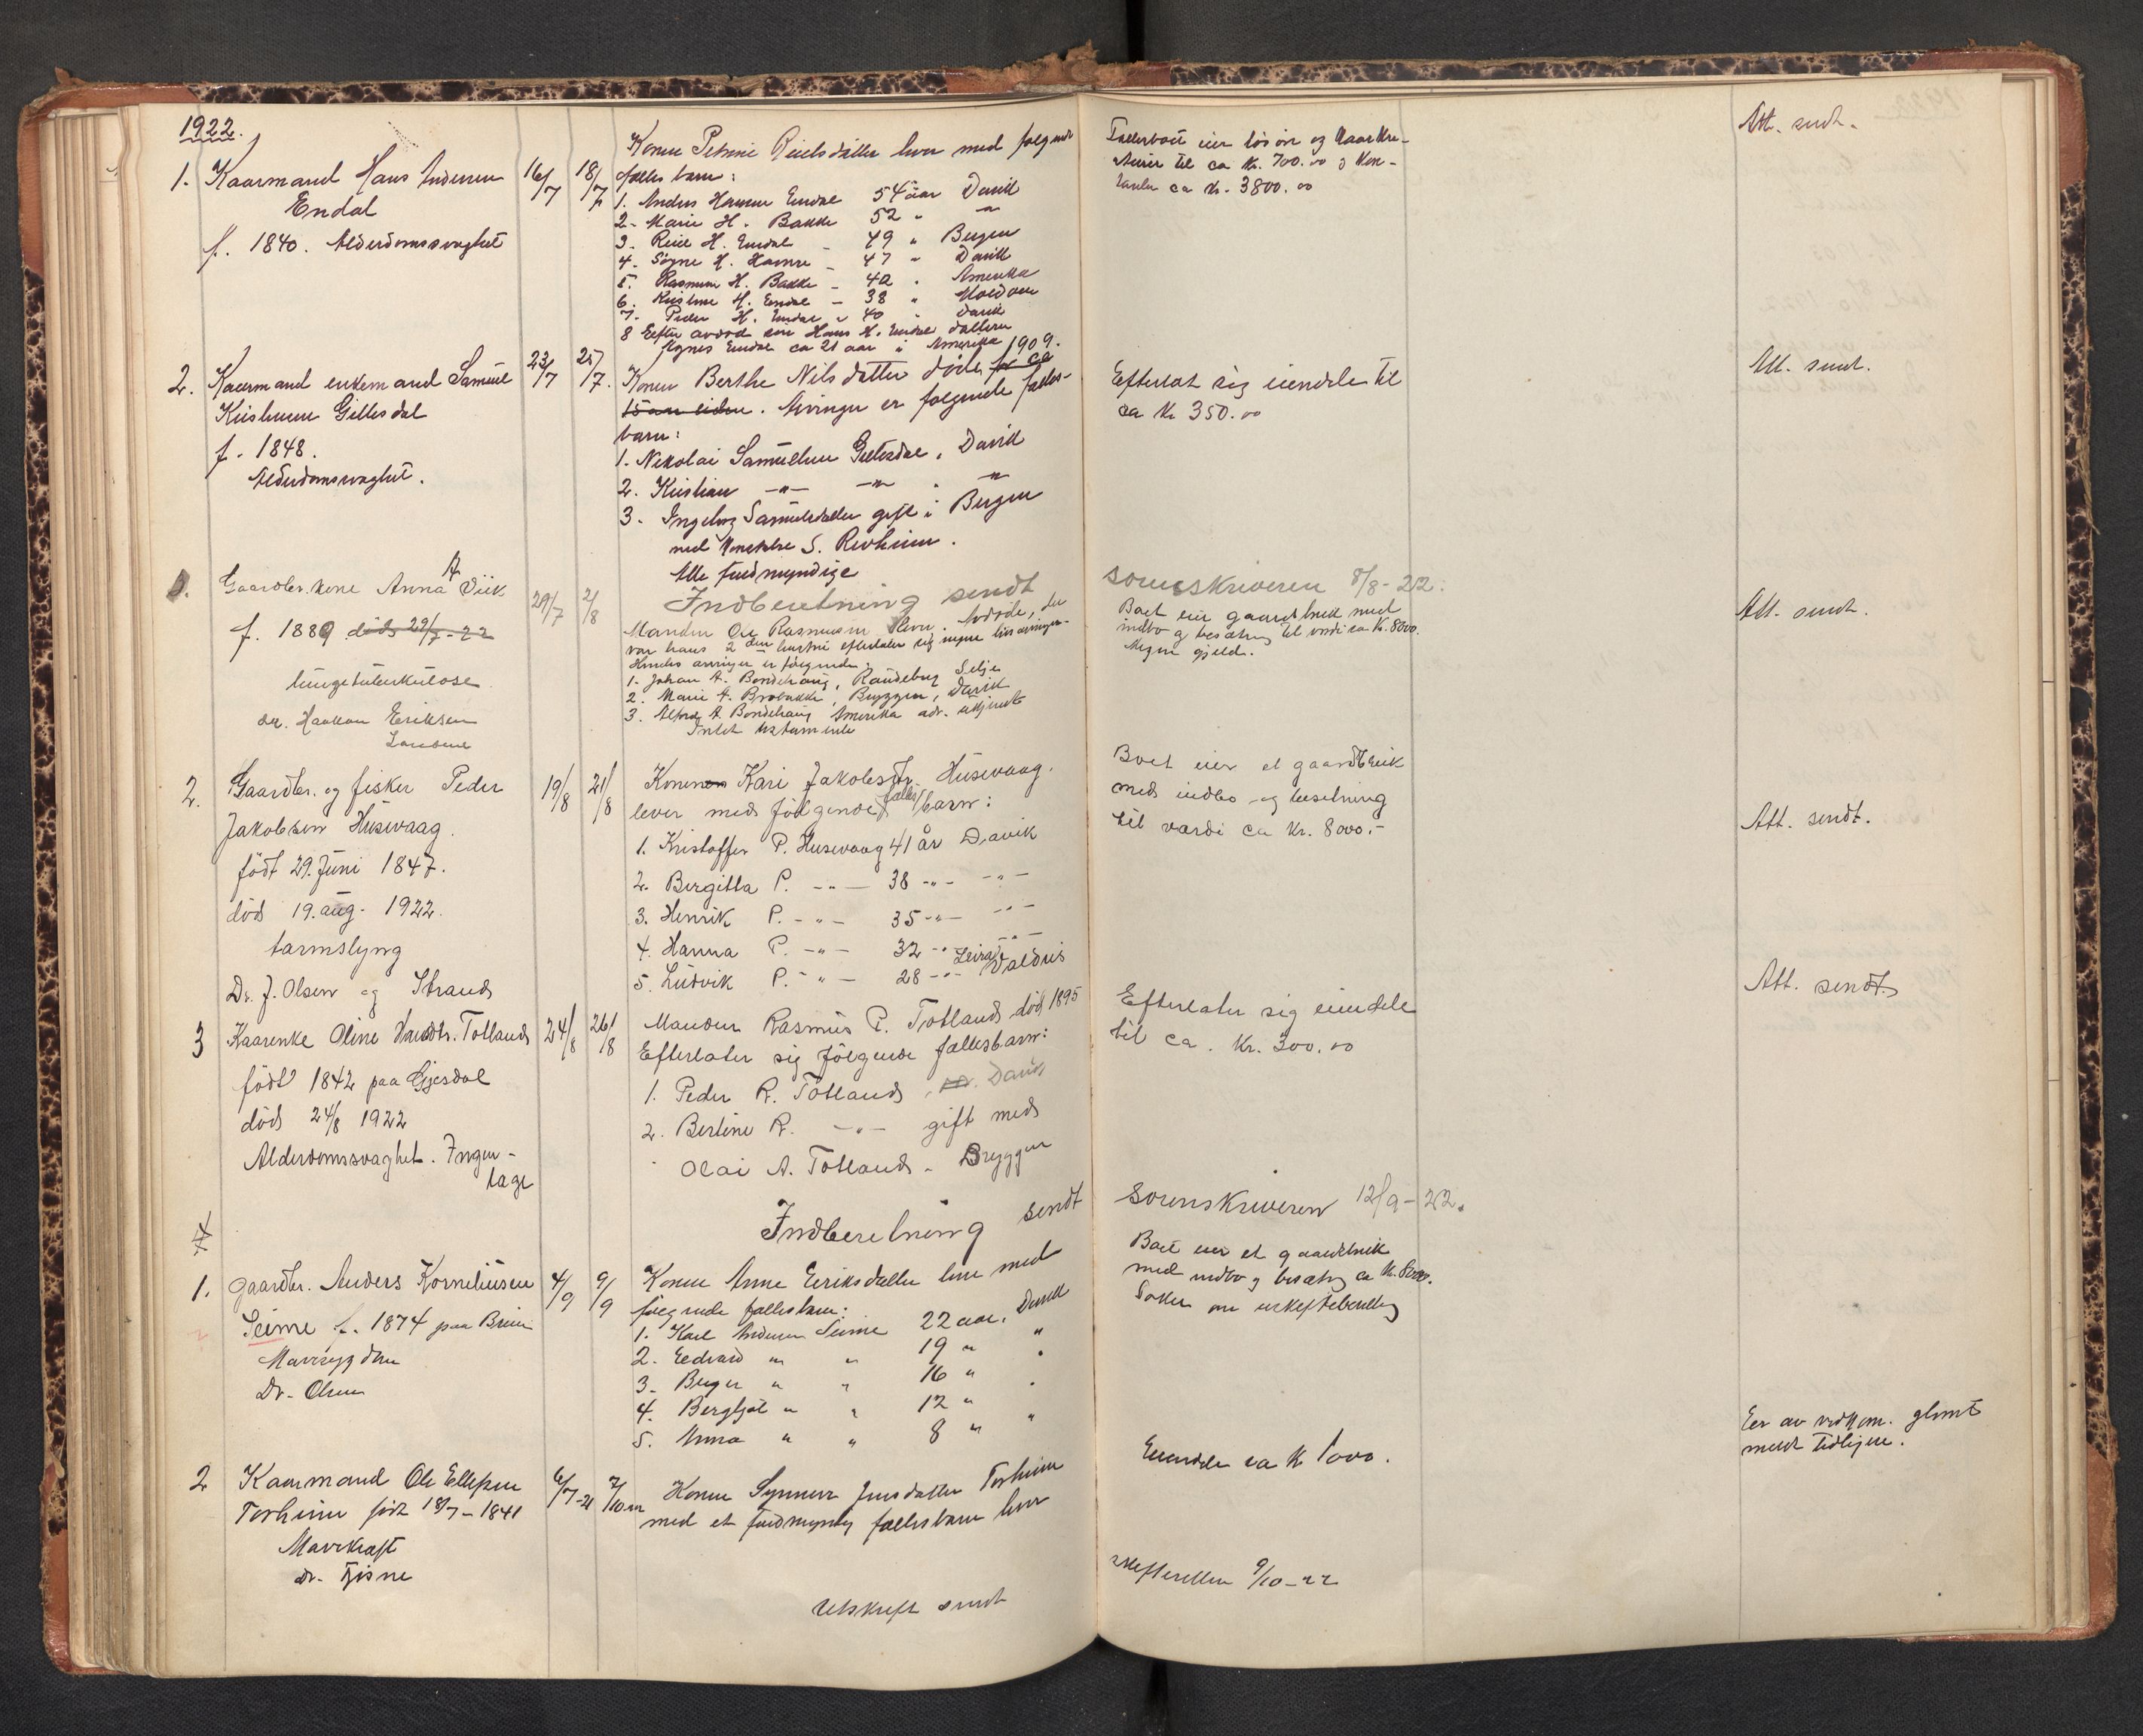 1922.
1. Kaarmand Hans Andersen
Endal
f. 1840. Alderdomssvaghet
16/7
18/7
Konen Petrine Reielsdatter lever med følgende
fælles barn:
1. Anders Hansen Endal 54 aar Davik
2. Marie H. Bakke 52 " "
3. Reiel H. Endal - 49 " Bergen
4. Signe H. Hamre - 47 " Davik
5. Rasmine H. Bakke - 42 " Amerika
6. Kristine H. Endal - 38 " Maldøen
7. Peder H. Endal - 40 " Davik
8 Efter avdød søn Hans H. Endal datteren
Agnes Endal ca 21 aar i Amerika
Fællesboet eier løsøre og
til ca Kr. 700.00 og
ca kr. 3800.00
Att. sendt.
2. Kaarmand enkemand Samuel
Kristensen Gillesdal
f. 1848.
Alderdomssvaghet.
23/7
25/7.
Konen Berthe Nilsdatter døde for ca 1909.
15 aar siden. Arvinger er følgende fælles-
barn:
1. Nikolai Samuelsen Gillesdal, Davik
2. Kristian -"- -"- . -"-
3. Ingeborg Samuelsdatter gift i Bergen
med S. Revheim.
Alle fuldmyndige
Efterlot sig eiendele til
ca Kr 350.00
Att. sendt.
Indberetning sendt sorenskriveren 8/8-22.
Gaardbr. kone Anna A Viik
f. 1889 død 29/7-22
lungetuberkulose
dr. Haakon Eriksen
29/7
2/8
Manden Ole Rasmussen lever. Avdøde, der
var hans 2den hustru efterlater sig ingen livsarvinger.
Hendes arvinger er følgende:
1. Johan A. Bondehaug, Raudeberg Selje
2. Marie A. Brobakke, Bryggen, Davik
3. Alfred A Bondehaug Amerika adr. ukjendt
Intet testamente
Boet eier gaardsbruk med
indbo og besætning til værdi ca Kr. 8000.
Megen gjeld.
Att. sendt.
2. Gaardbr. og fisker Peder
Jakobsen Husevaag.
født 29. Juni 1847.
død 19. aug. 1922.
tarmslyng
Dr. J. Olsen og Strand
19/8
21/8
Konen Kari Jakobsdtr. Husevaag.
lever med følgende fælles barn:
1. Kristoffer P. Husevaag 41 år Davik
2. Bergitta P. -"- 38 -"- -"-
3. Henrik P. -"- 35 -"- -"-
4. Hanna P. -"- 32 -"- -"-
5. Ludvik P. -"- 28 -"- Leira Valdris
Boet eier et gaardsbruk
med indbo og besetning
til værdi ca Kr. 8000.-
Att. sendt.
3 Kaarenke Oline Totland
født 1842 paa Gjesdal
død 24/8 1922
Alderdomssvaghet. Ingen
læge
24/8
26/8
Manden Rasmus P. Totland død 1895
Efterlater sig følgende fællesbarn:
1. Peder R. Totland, Davik
2. Bertine R. -"- gift med
Olai A. Totland - Bryggen
Efterlater sig eiendele
til ca. Kr. 300.00
Att. sendt
Indberetning sendt sorenskriveren 12/9-22.
1. Gaardbr. Anders Korneliusen
Seime f. 1874 paa
Mavesygdom
Dr. Olsen
4/9
9/9
Konen Anne Eriksdatter lever med
følgende fællesbarn:
1. Karl Andersen Seime 22 aar, Davik
2. Edvard " " 19 " "
3. Birger " " 16 " "
4. Bergljot " " 12 " "
5. Anna " " 8 " "
Boet eier et gaardsbruk
med indbo og besætning ca Kr. 8000.
Søker om uskiftebevilling
2 Kaarmand Ole Ellefsen
Torheim født 18/7-1841
Mavekræft
dr. Fjisne
6/7-21
7/10 22
Konen Synneve Jensdatter Torheim
med et fuldmyndig fællesbarn lever
Eiendele ca Kr 1000.
Er av vedkom. glemt
meldt tidligere.
Utskrift sendt skifteretten 9/10-22